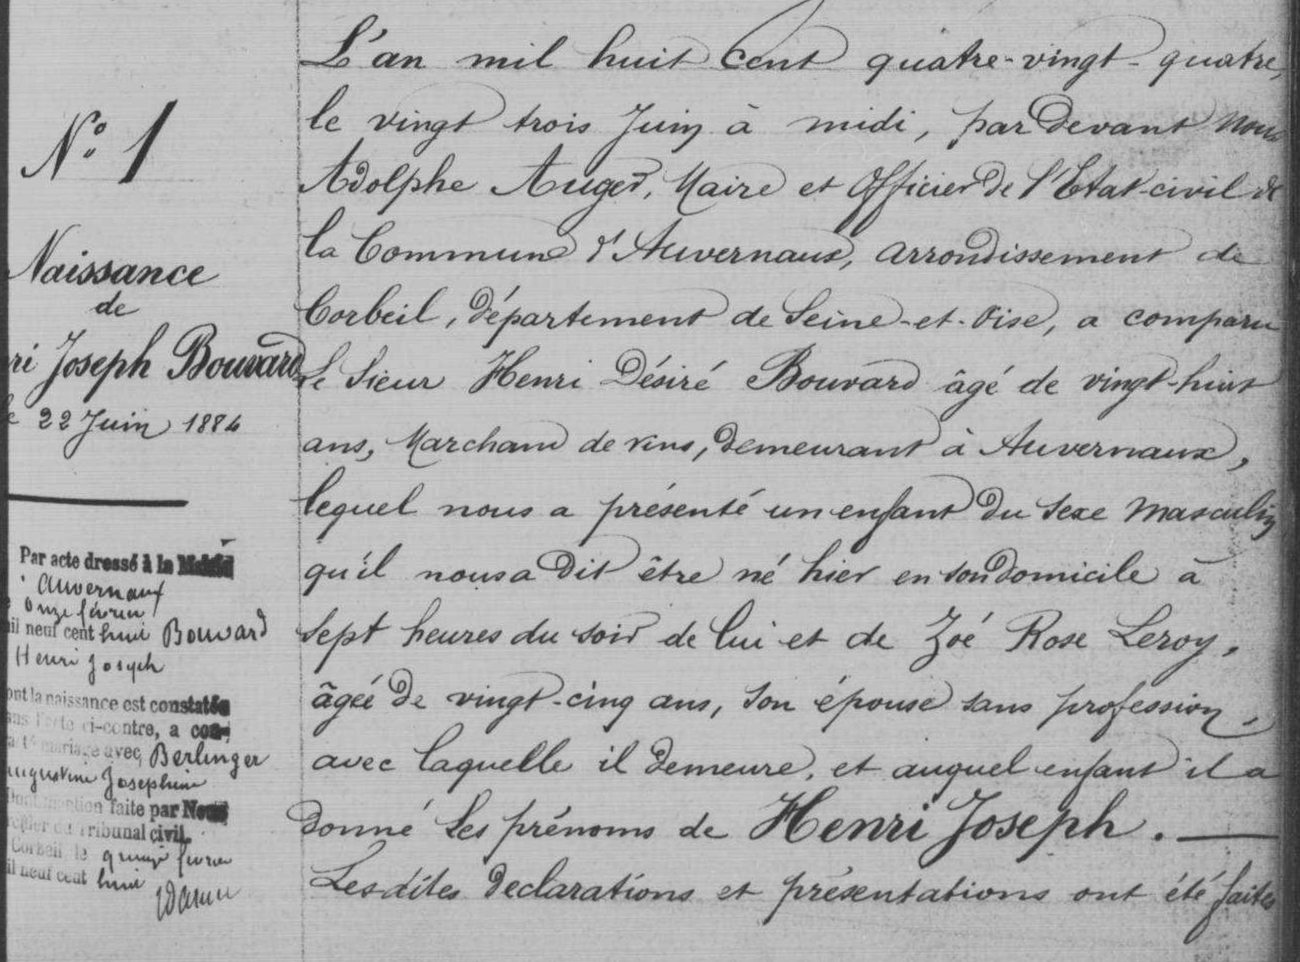 N° 1
Naissance
de
ri Joseph Bouvard
le 22 Juin 1884
Par acte dressé à la Mairie
Auvernaux
onze février
mil neuf cent huit Bouvard
Henri Joseph
dont la naissance est constatée
dans l'acte ci-contre, a con-
tracté mariage avec Berlinger
Augustine Joséphine
Dont mention faite par Nous
greffier du Tribunal civil
Corbeil le quinze février
mil neuf cent huit
L'an mil huit cent quatre-vingt-quatre,
le vingt trois Juin à midi, par devant Nous
Adolphe Auger, Maire et Officier de l'Etat-civil de
la Commune d'Auvernaux, arrondissement de
Corbeil, département de Seine-et-Oise, a comparu
Le Sieur Henri Désiré Bouvard âgé de vingt-huit
ans, Marchand de vins, demeurant à Auvernaux,
lequel nous a présenté un enfant du sexe Masculin
qu'il nous a dit être né hier en son domicile à
sept heures du soir de lui et de Zoé Rose Leroy,
âgée de vingt-cinq ans, son épouse sans profession,
avec laquelle il demeure, et auquel enfant il a
donné les prénoms de Henri Joseph.
Les dites declarations et présentations ont été faites